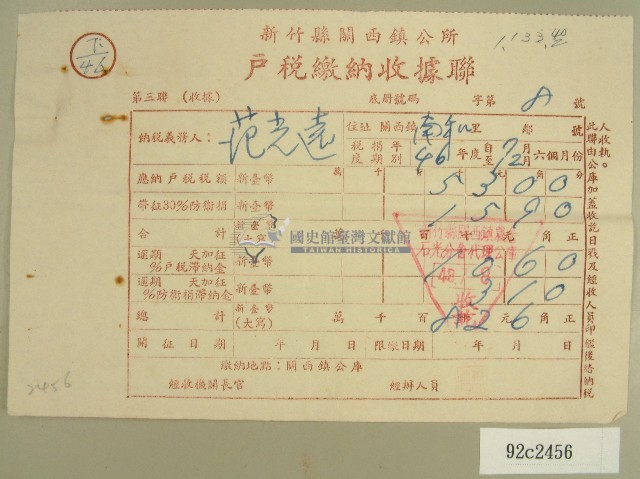 下/46
新竹縣關西鎮公所
1,133.40
戶稅繳納收據聯
第三聯 (收據) 底冊號碼 字第 8 號
納稅義務人： 范光遠 住址 關西鎮 南和 里 鄰 號
稅捐年度期別 46 年度自7月至12月六個月份
萬 千 百 十 元 角 分
應納戶稅稅額 新臺幣 5 3 0 0
帶征30%防衛捐 新臺幣 1 5 9 0
合計 新臺幣 (大寫) 萬 千 百 十 元 角 正
逾期 天加征 %戶稅滯納金 新臺幣 1 0 6 0
逾期 天加征 %防衛捐滯納金 新臺幣 3 1 0
總計 新臺幣 (大寫) 萬 千 百 8 2 6 角 正
開征日期 年 月 日 限繳日期 年 月 日
繳納地點：關西鎮公庫
經收機關長官 經辦人員
此聯由公庫加蓋收訖日戳及經收人員印鑑後給納稅
人收執。
國史館臺灣文獻館
TAIWAN HISTORICA
石光分會代理公庫
收
2456
92c2456